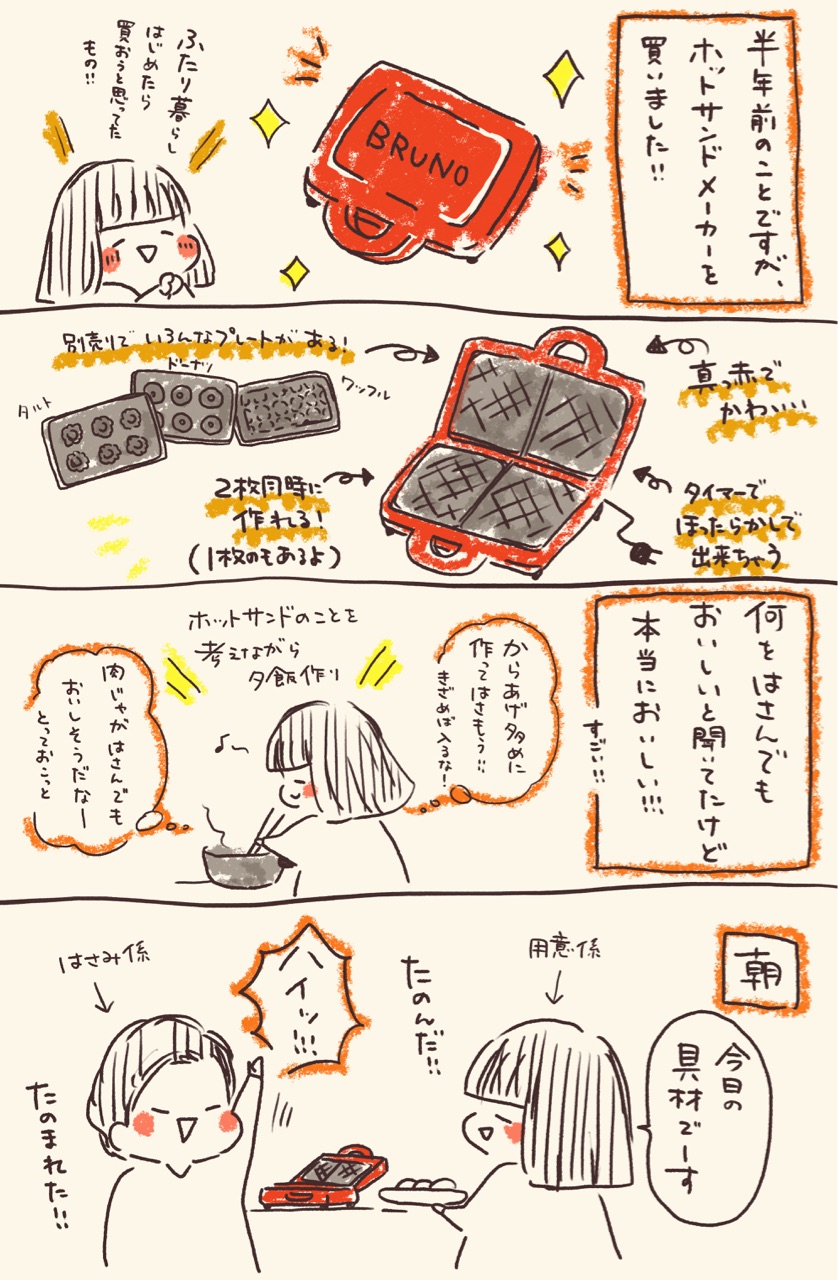 半年前のことですが、
ホットサンドメーカーを
買いました!!
BRUNO
ふたり暮らし
はじめたら
買おうと思ってた
もの!!
真っ赤で
かわいい
別売りでいろんなプレートがある!
ドーナツ
ワッフル
タルト
タイマーで
ほったらかしで
出来ちゃう
2枚同時に
作れる!
(1枚のもあるよ)
何をはさんでも
おいしいと聞いてたけど
本当においしい!!!
すごい!!
ホットサンドのことを
考えながら
夕飯作り
からあげ多めに
作ってはさもう!!
きざめば入るな!
肉じゃがはさんでも
おいしそうだなー
とっておこっと
朝
今日の
具材でーす
用意係
たのんだ!!
ハイッ!!!
はさみ係
たのまれた!!